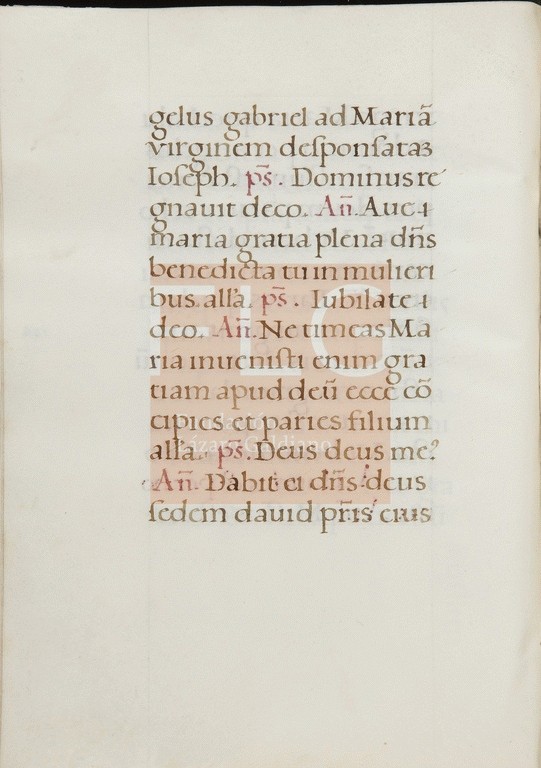 gelus gabriel ad Mariā
virginem desponsataꝫ
Ioseph. ps̄. Dominus re
gnauit deco. Añ. Aue
maria gratia plena dñs
benedicta tu in mulieri
bus. all'a. ps̄. Iubilate
deo. Añ. Ne timeas Ma
ria inuenisti enim gra
tiam apud deū ecce cō
cipies et paries filium
all'a. ps̄. Deus deus me?
Añ. Dabit ei dñs deus
sedem dauid pr̄is eius
FLG
Fundación
Lázaro Galdiano